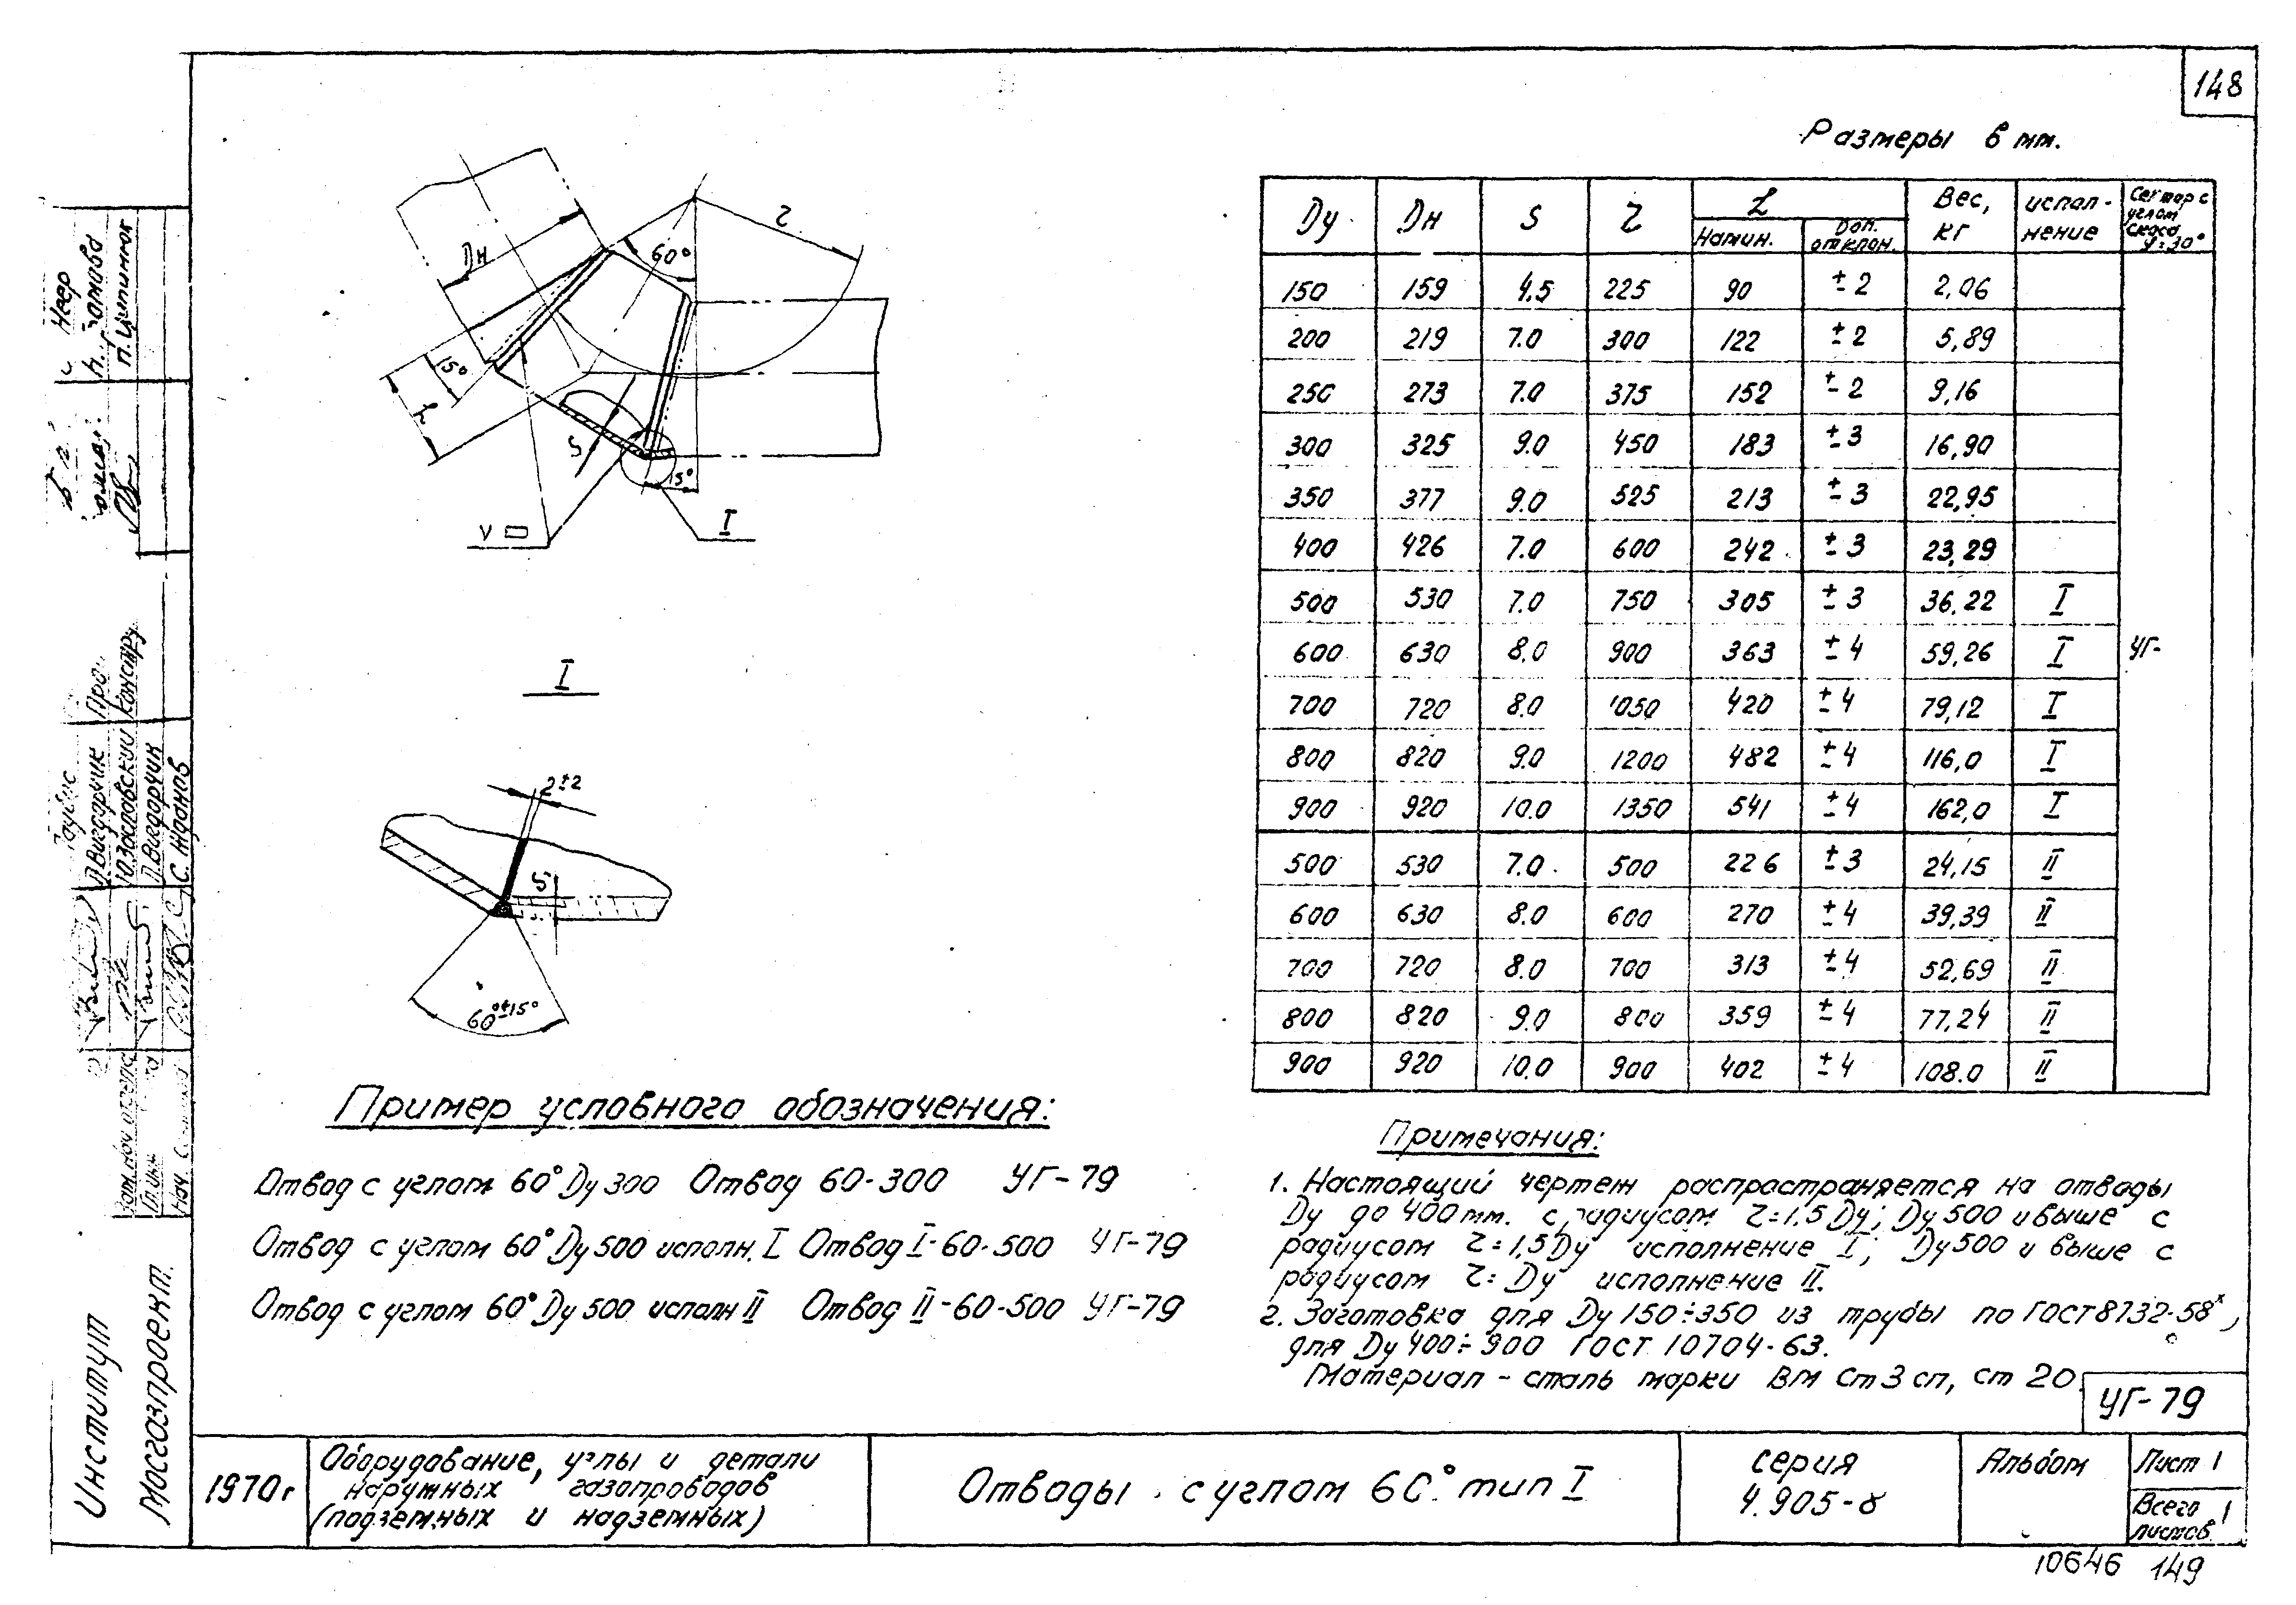 148
Размеры в мм.
Ду Дн S r L Вес, кг испол-нение Сектор с углом скоса γ=30°
Номин. Доп. отклон.
150 159 4.5 225 90 ±2 2,06
200 219 7.0 300 122 ±2 5,89
250 273 7.0 375 152 ±2 9,16
300 325 9.0 450 183 ±3 16,90
350 377 9.0 525 213 ±3 22,95
400 426 7.0 600 242 ±3 23,29
500 530 7.0 750 305 ±3 36,22 I
600 630 8.0 900 363 ±4 59,26 I УГ-
700 720 8.0 1050 420 ±4 79,12 I
800 820 9.0 1200 482 ±4 116,0 I
900 920 10.0 1350 541 ±4 162,0 I
500 530 7.0 500 226 ±3 24,15 II
600 630 8.0 600 270 ±4 39,39 II
700 720 8.0 700 313 ±4 52,69 II
800 820 9.0 800 359 ±4 77,24 II
900 920 10.0 900 402 ±4 108.0 II
Дн
60°
r
15°
L
S
15°
I
I
2±2
S
60°±15°
Пример условного обозначения:
Отвод с углом 60° Ду 300 Отвод 60-300 УГ-79
Отвод с углом 60° Ду 500 исполн. I Отвод I-60-500 УГ-79
Отвод с углом 60° Ду 500 исполн II Отвод II-60-500 УГ-79
Примечания:
1. Настоящий чертеж распространяется на отводы
Ду до 400 мм. с радиусом r=1.5 Ду; Ду 500 и выше с
радиусом r=1,5 Ду исполнение I; Ду 500 и выше с
радиусом r=Ду исполнение II.
2. Заготовка для Ду 150÷350 из трубы по ГОСТ 8732-58ˣ,
для Ду 400÷900 ГОСТ 10704-63.
Материал - сталь марки ВМ Ст 3 сп, ст 20.
УГ-79
1970г
Оборудование, узлы и детали
наружных газопроводов
(подземных и надземных)
Отводы с углом 60° тип I
серия
4.905-8
Альбом
Лист 1
Всего листов 1
10646 149
Институт
Мосгазпроект.
П. Вигдорчик
Ю. Заславский
П. Вигдорчик
С. Жданов
Констру
П. Ципишок